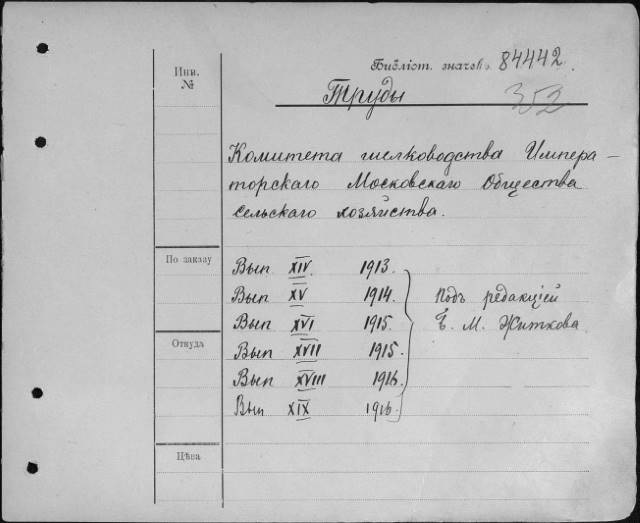 Инв.
№
Библіот. значекъ 84442.
Труды
352
Комитета шелководства Импера–
торскаго Московскаго Общества
сельскаго хозяйства.
По заказу
Вып XIV. 1913.
Вып XV 1914.
Вып XVI 1915.
Вып XVII 1915.
Вып XVIII 1916.
Вып XIX 1916.
Подъ редакціей
Б. М. Житкова
Откуда
Цѣна